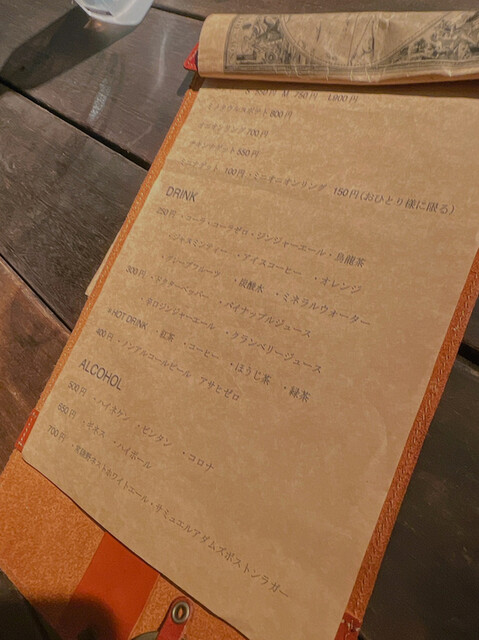 S 550円 M 750円 L900円
オニオンリング700円
チキンナゲット550円
ミニナゲット 100円・ミニオニオンリング 150円(おひとり様に限る)
DRINK
250円 ・コーラ・コーラゼロ・ジンジャーエール・烏龍茶
・ジャスミンティー ・アイスコーヒー ・オレンジ
・グレープフルーツ ・炭酸水 ・ミネラルウォーター
300円 ・ドクターペッパー ・パイナップルジュース
・辛口ジンジャーエール ・クランベリージュース
#HOT DRINK ・紅茶 ・コーヒー ・ほうじ茶 ・緑茶
400円 ・ノンアルコールビール アサヒゼロ
ALCOHOL
500円 ・ハイネケン ・ゼンタン ・コロナ
650円 ・ギネス ・ハイボール
700円 ・常陸野ネストホワイトエール・サミュエルアダムズボストンラガー